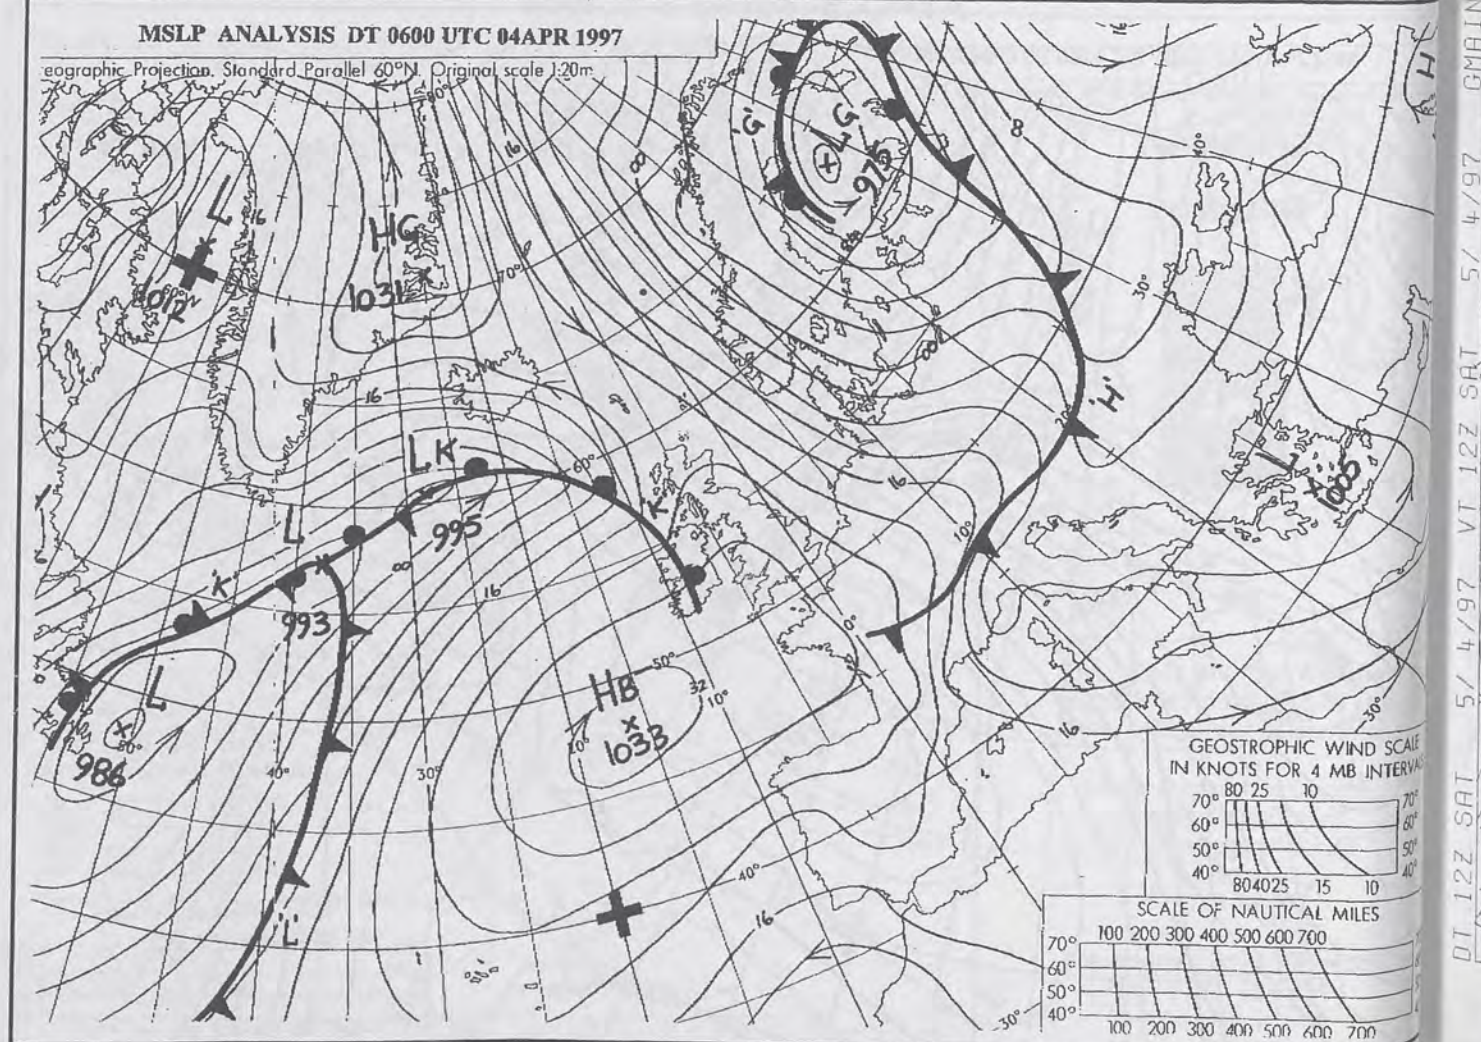 MSLP ANALYSIS DT 0600 UTC 04APR 1997
eographic Projection, Standard Parallel 60°N. Original scale 1:20m
80°
16
8
'G'
L G
975
H
40°
L
16
1012
HG
1031
70°
30°
'H'
16
LK
60°
'K'
16
L
1005
995
20°
10°
L
'K'
993
8
16
0°
50°
HB
1033
32
10°
20°
L
986
50°
40°
30°
16
30°
40°
16
'L'
30°
GEOSTROPHIC WIND SCALE
IN KNOTS FOR 4 MB INTERVALS
80 25 10
70° 70°
60° 60°
50° 50°
40° 40°
80 40 25 15 10
SCALE OF NAUTICAL MILES
100 200 300 400 500 600 700
70°
60°
50°
40°
100 200 300 400 500 600 700
DT 12Z SAT 5/ 4/97 VT 12Z SAT 5/ 4/97 GMAIN